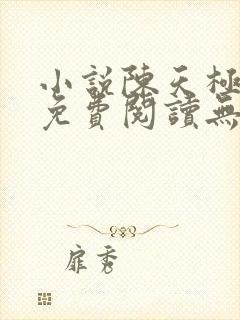 小說陳天極
免費閱讀無
扉秀